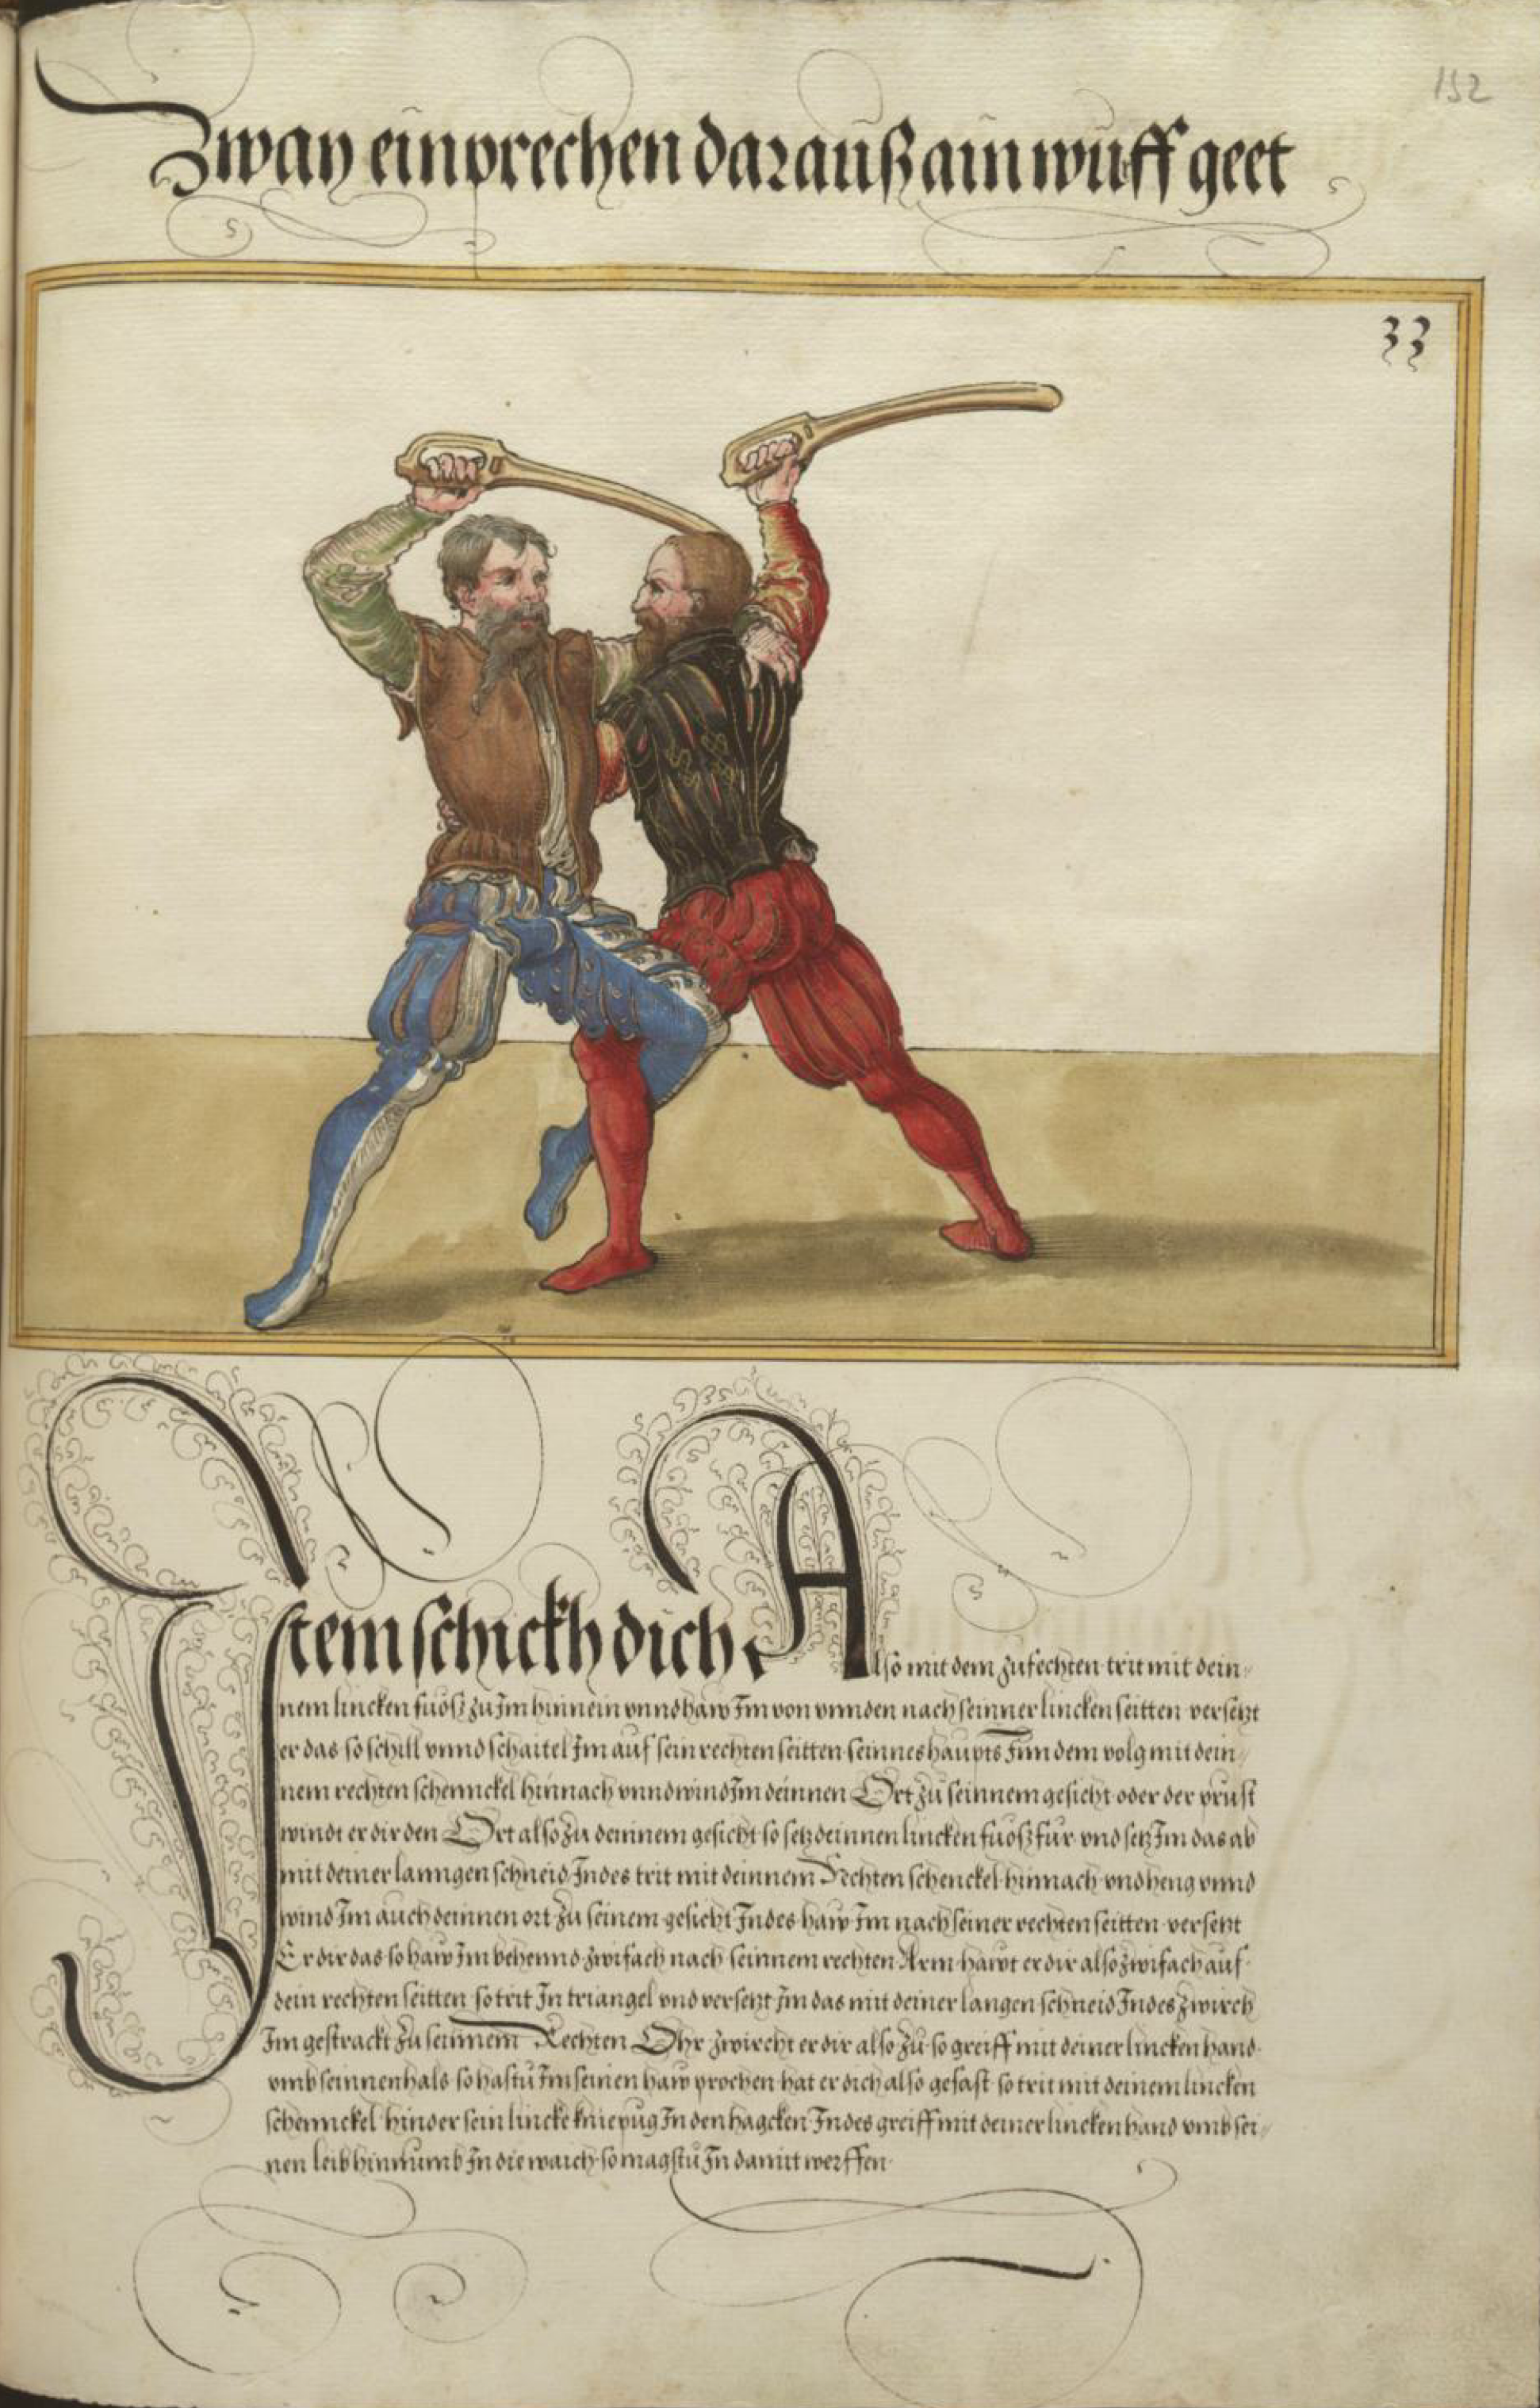 152
Zway einprechen darauß ain wuff geet
33
Item schickh dich Also mit dem zufechten trit mit dein„
nem lincken fuoß zu Im hinnein vnnd haw Im von vnnden nach seinner lincken seitten versetzt
er das so schill vnnd schaitel Im auf sein rechten seitten seinnes haupts Inn dem volg mit dein„
nem rechten schennckel hinnach vnnd wind Im deinnen Ort zu seinnem gesicht oder der prust
windt er dir den Ort also zu deinnem gesicht so setz deinnen lincken fuoß für vnd setz Im das ab
mit deiner lanngen schneid Indes trit mit deinnem Rechten schenckel hinnach vnd heng vnnd
wind Im auch deinnen ort zu seinem gesicht Indes haw Im nach seiner rechten seitten versetzt
Er dir das so haw Im behennd zwifach nach seinnem rechten Arm hawt er dir also zwifach auf
dein rechten seitten so trit In triangel vnd versetzt Im das mit deiner langen schneid Indes zwirch
Im gestrackt zu seinnem Rechten Ohr zwircht er dir also zu so greiff mit deiner lincken hand
vmb seinnen hals so hastu Im seinen haw prochen hat er dich also gefast so trit mit deinem lincken
schennckel hinder sein lincke kniepug In den hagcken Indes greiff mit deiner lincken hand vmb sei„
nen leib hinumb In die waich so magstu In damit werffen